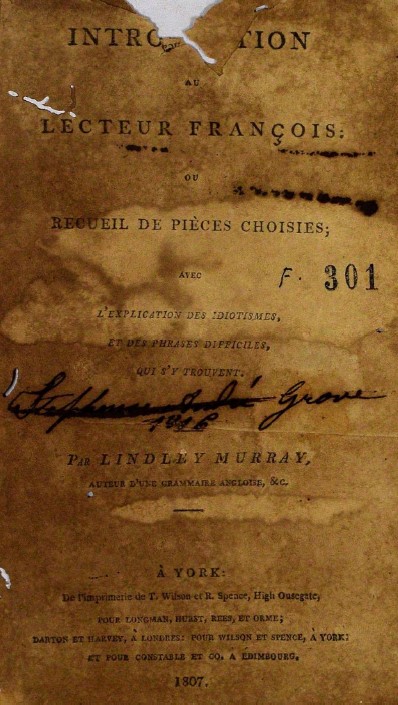 INTRO TION
AU
LECTEUR FRANÇOIS:
OU
RECUEIL DE PIÈCES CHOISIES;
AVEC
F. 301
L'EXPLICATION DES IDIOTISMES,
ET DES PHRASES DIFFICILES,
QUI S'Y TROUVENT.
Grove
1816
PAR LINDLEY MURRAY,
AUTEUR D'UNE GRAMMAIRE ANGLOISE, &C.
À YORK:
De l'imprimerie de T. Wilson et R. Spence, High Ousegate,
POUR LONGMAN, HURST, REES, ET ORME;
DARTON ET HARVEY, À LONDRES: POUR WILSON ET SPENCE, À YORK:
ET POUR CONSTABLE ET CO. A EDIMBOURG.
1807.